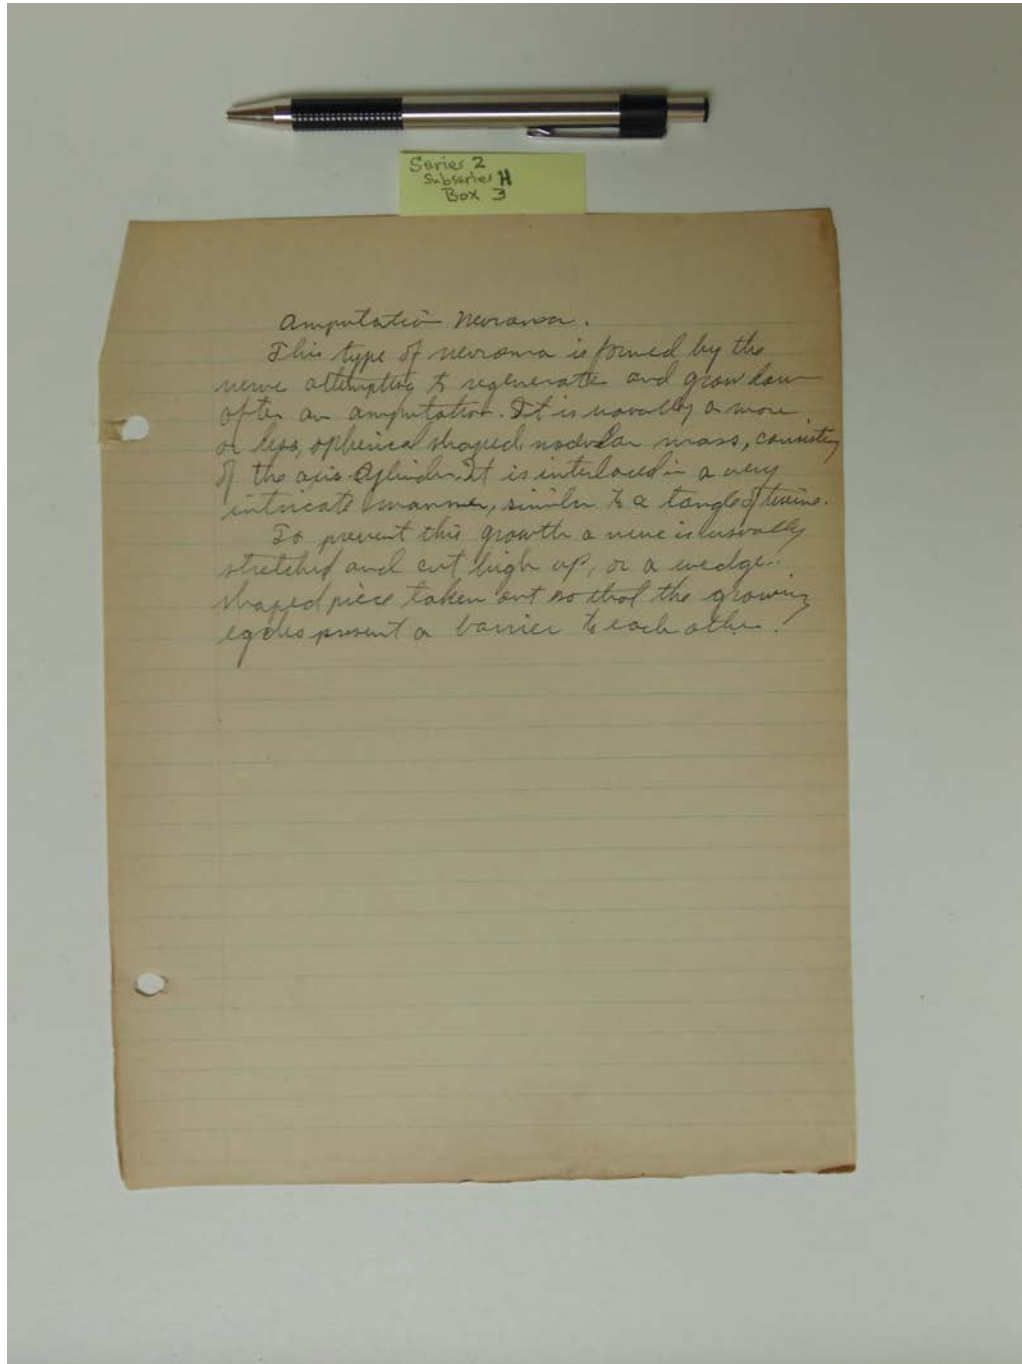 Series 2
Subseries H
Box 3
Amputation Neuroma.
This type of neuroma is formed by the
nerve attempting to regenerate and grow down
after an amputation. It is usually a more
or less, spherical shaped nodular mass, consisting
of the axis-cylinder. It is interlaced in a very
intricate manner, similar to a tangle of twine.
To prevent this growth a nerve is usually
stretched and cut high up, or a wedge-
shaped piece taken out so that the growing
present a barrier to each other.